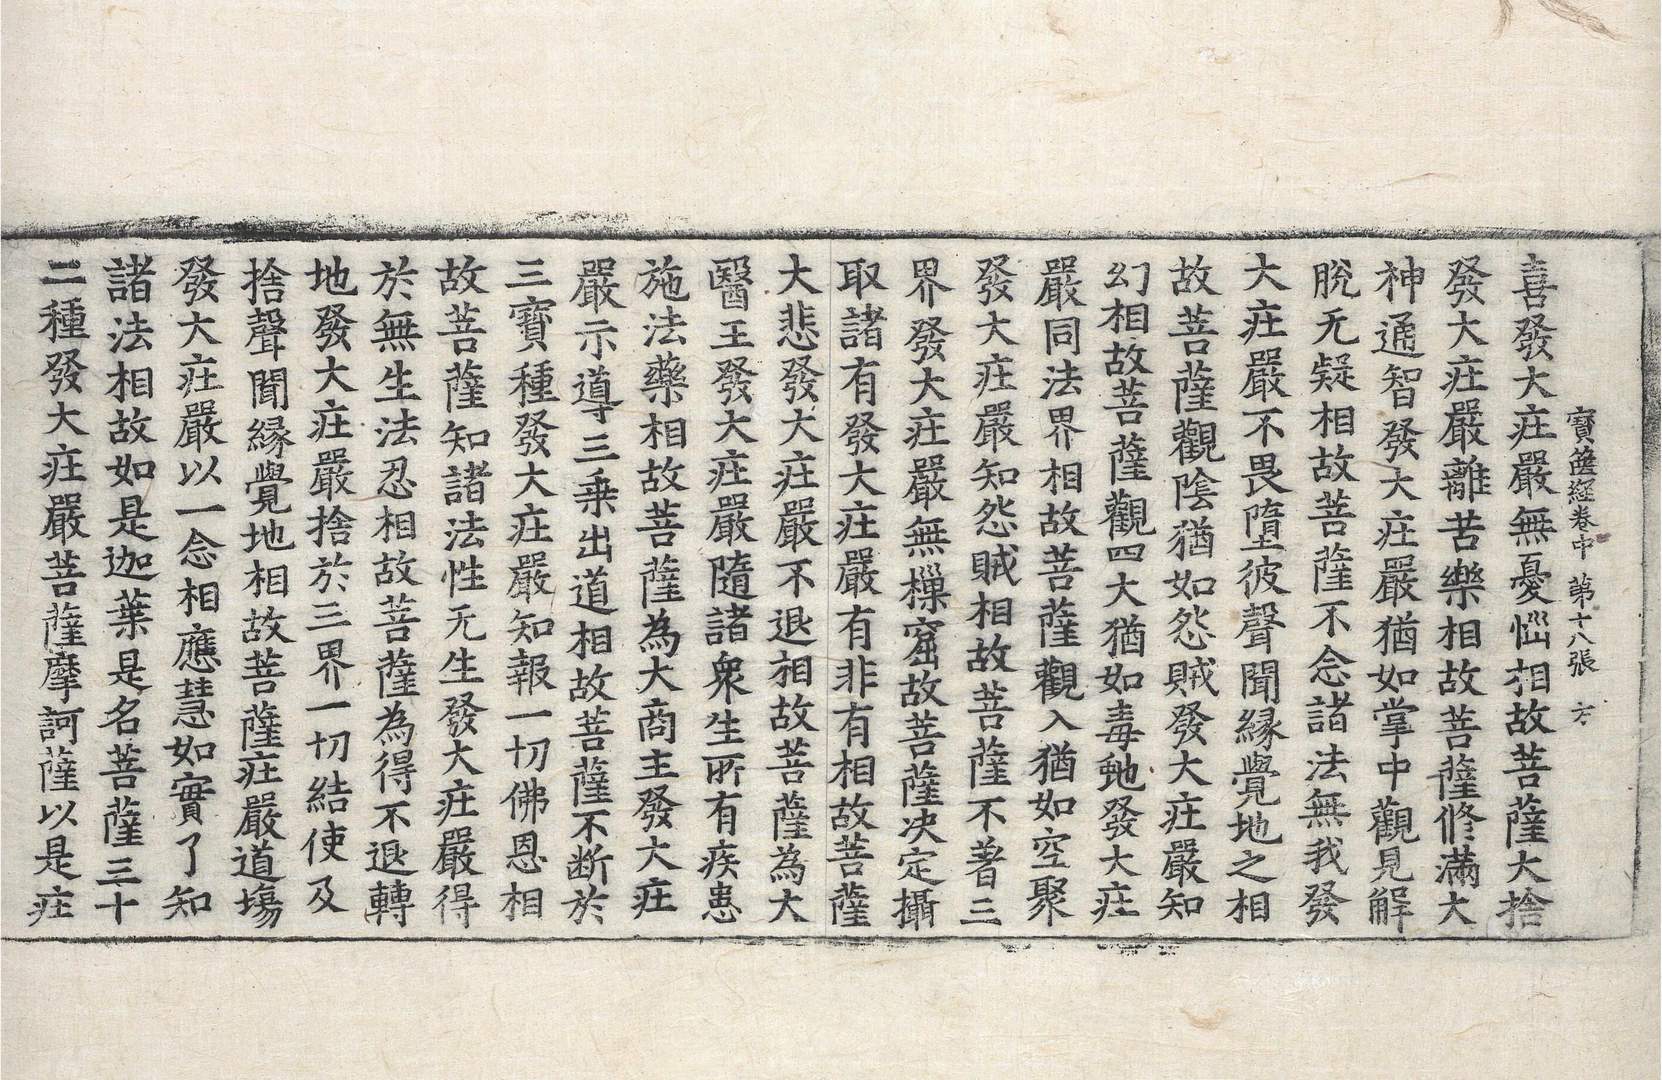 寶篋經卷中 第十八張 方
喜發大莊嚴無憂惱相故菩薩大捨
發大莊嚴離苦樂相故菩薩修滿大
神通智發大莊嚴猶如掌中觀見解
脫无疑相故菩薩不念諸法無我發
大莊嚴不畏墮彼聲聞緣覺地之相
故菩薩觀陰猶如怨賊發大莊嚴知
幻相故菩薩觀四大猶如毒虵發大莊
嚴同法界相故菩薩觀入猶如空聚
發大莊嚴知怨賊相故菩薩不著三
界發大莊嚴無樔窟故菩薩決定攝
取諸有發大莊嚴有非有相故菩薩
大悲發大莊嚴不退相故菩薩為大
醫王發大莊嚴隨諸衆生所有疾患
施法藥相故菩薩為大商主發大莊
嚴示導三乘出道相故菩薩不斷於
三寶種發大莊嚴知報一切佛恩相
故菩薩知諸法性无生發大莊嚴得
於無生法忍相故菩薩為得不退轉
地發大莊嚴捨於三界一切結使及
捨聲聞緣覺地相故菩薩莊嚴道場
發大莊嚴以一念相應慧如實了知
諸法相故如是迦葉是名菩薩三十
二種發大莊嚴菩薩摩訶薩以是莊